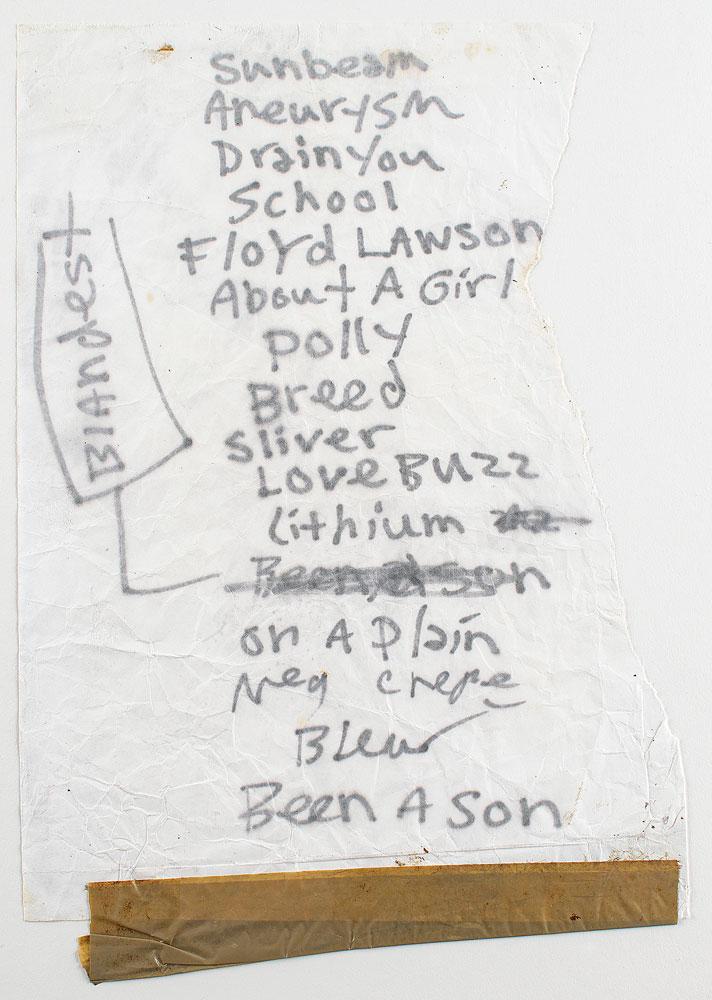 Sunbeam
Aneurysm
Drain You
School
Floyd LAWSON
About A Girl
Polly
Breed
Sliver
Love BUZZ
Lithium
Been A Son
on A Plain
Neg Crepe
Blew
Been A Son
BlAndest